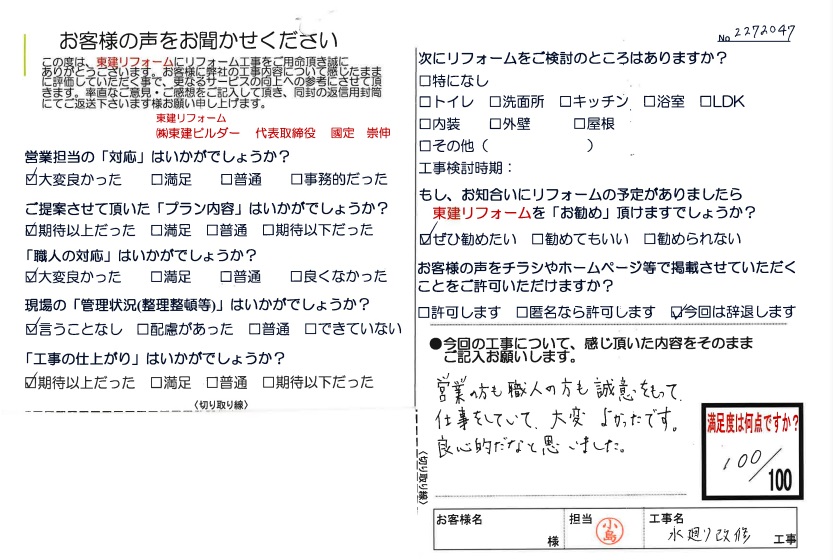 お客様の声をお聞かせください
この度は、東建リフォームにリフォーム工事をご用命頂き誠に
ありがとうございます。お客様に弊社の工事内容について感じたまま
に評価していただく事で、更なるサービスの向上への参考にさせて頂
きます。率直なご意見・ご感想をご記入して頂き、同封の返信用封筒
にてご返送下さいます様お願い申し上げます。
東建リフォーム
㈱東建ビルダー 代表取締役 國定 崇伸
営業担当の「対応」はいかがでしょうか？
☑大変良かった □満足 □普通 □事務的だった
ご提案させて頂いた「プラン内容」はいかがでしょうか？
☑期待以上だった □満足 □普通 □期待以下だった
「職人の対応」はいかがでしょうか？
☑大変良かった □満足 □普通 □良くなかった
現場の「管理状況(整理整頓等)」はいかがでしょうか？
☑言うことなし □配慮があった □普通 □できていない
「工事の仕上がり」はいかがでしょうか？
☑期待以上だった □満足 □普通 □期待以下だった
〈切り取り線〉
No 2272047
次にリフォームをご検討のところはありますか？
□特になし
□トイレ □洗面所 □キッチン □浴室 □LDK
□内装 □外壁 □屋根
□その他（ ）
工事検討時期：
もし、お知合いにリフォームの予定がありましたら
東建リフォームを「お勧め」頂けますでしょうか？
☑ぜひ勧めたい □勧めてもいい □勧められない
お客様の声をチラシやホームページ等で掲載させていただく
ことをご許可いただけますか？
□許可します □匿名なら許可します ☑今回は辞退します
●今回の工事について、感じ頂いた内容をそのまま
ご記入お願いします。
営業の方も職人の方も誠意をもって
仕事をしていて、大変よかったです。
良心的だなと思いました。
〈切り取り線〉
満足度は何点ですか？
100/100
お客様名 様
担当 小島
工事名 水廻り改修 工事